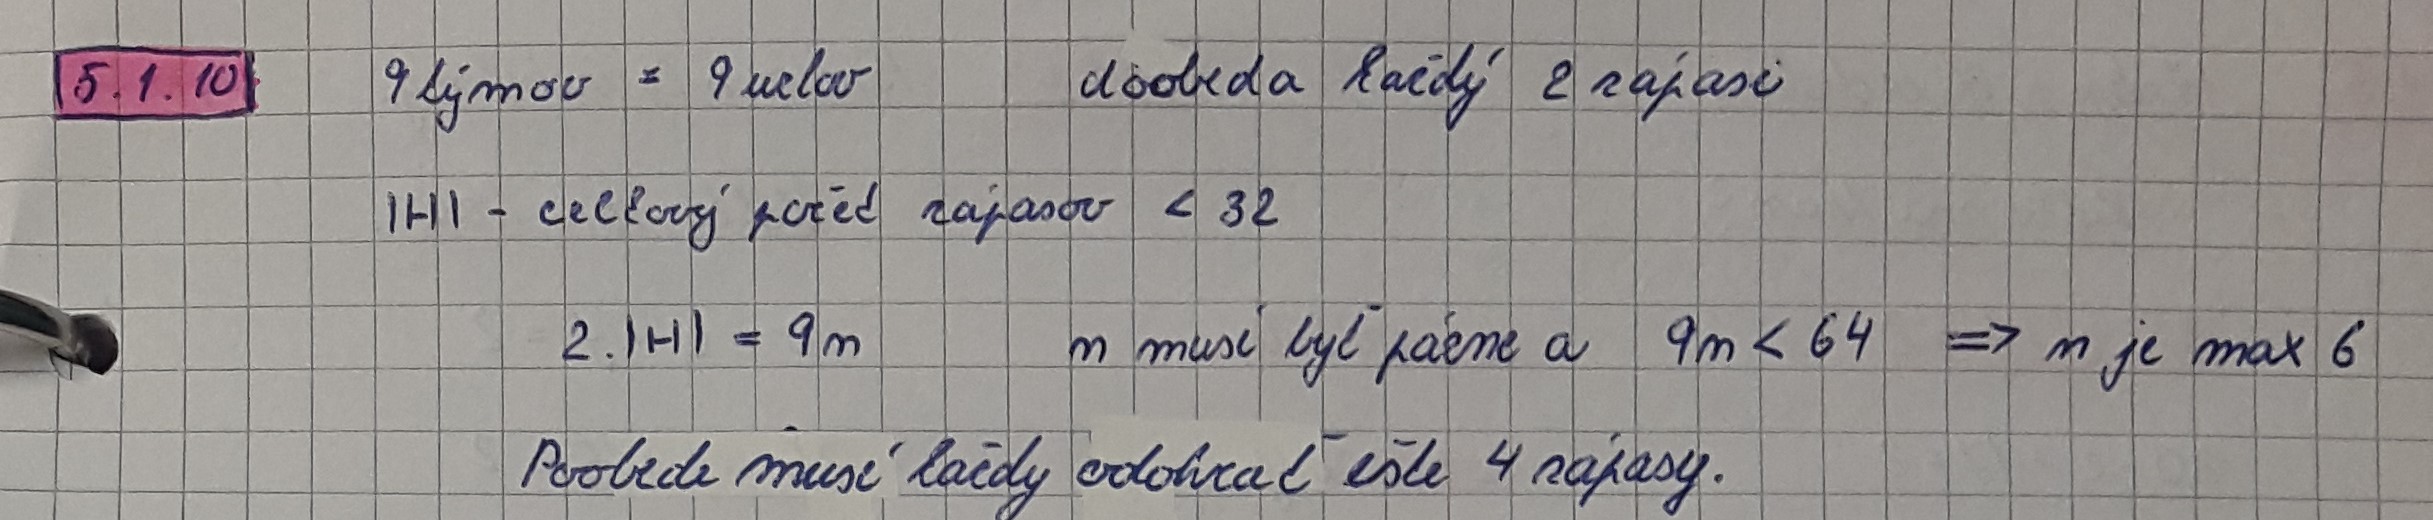 5.1.10 9 týmov = 9 uzlov doobeda každý 2 zápasi
|H| - celkový počet zápasov < 32
2.|H| = 9n n musí byť párne a 9n < 64 => n je max 6
Poobede musí každy odohrať ešte 4 zápasy.